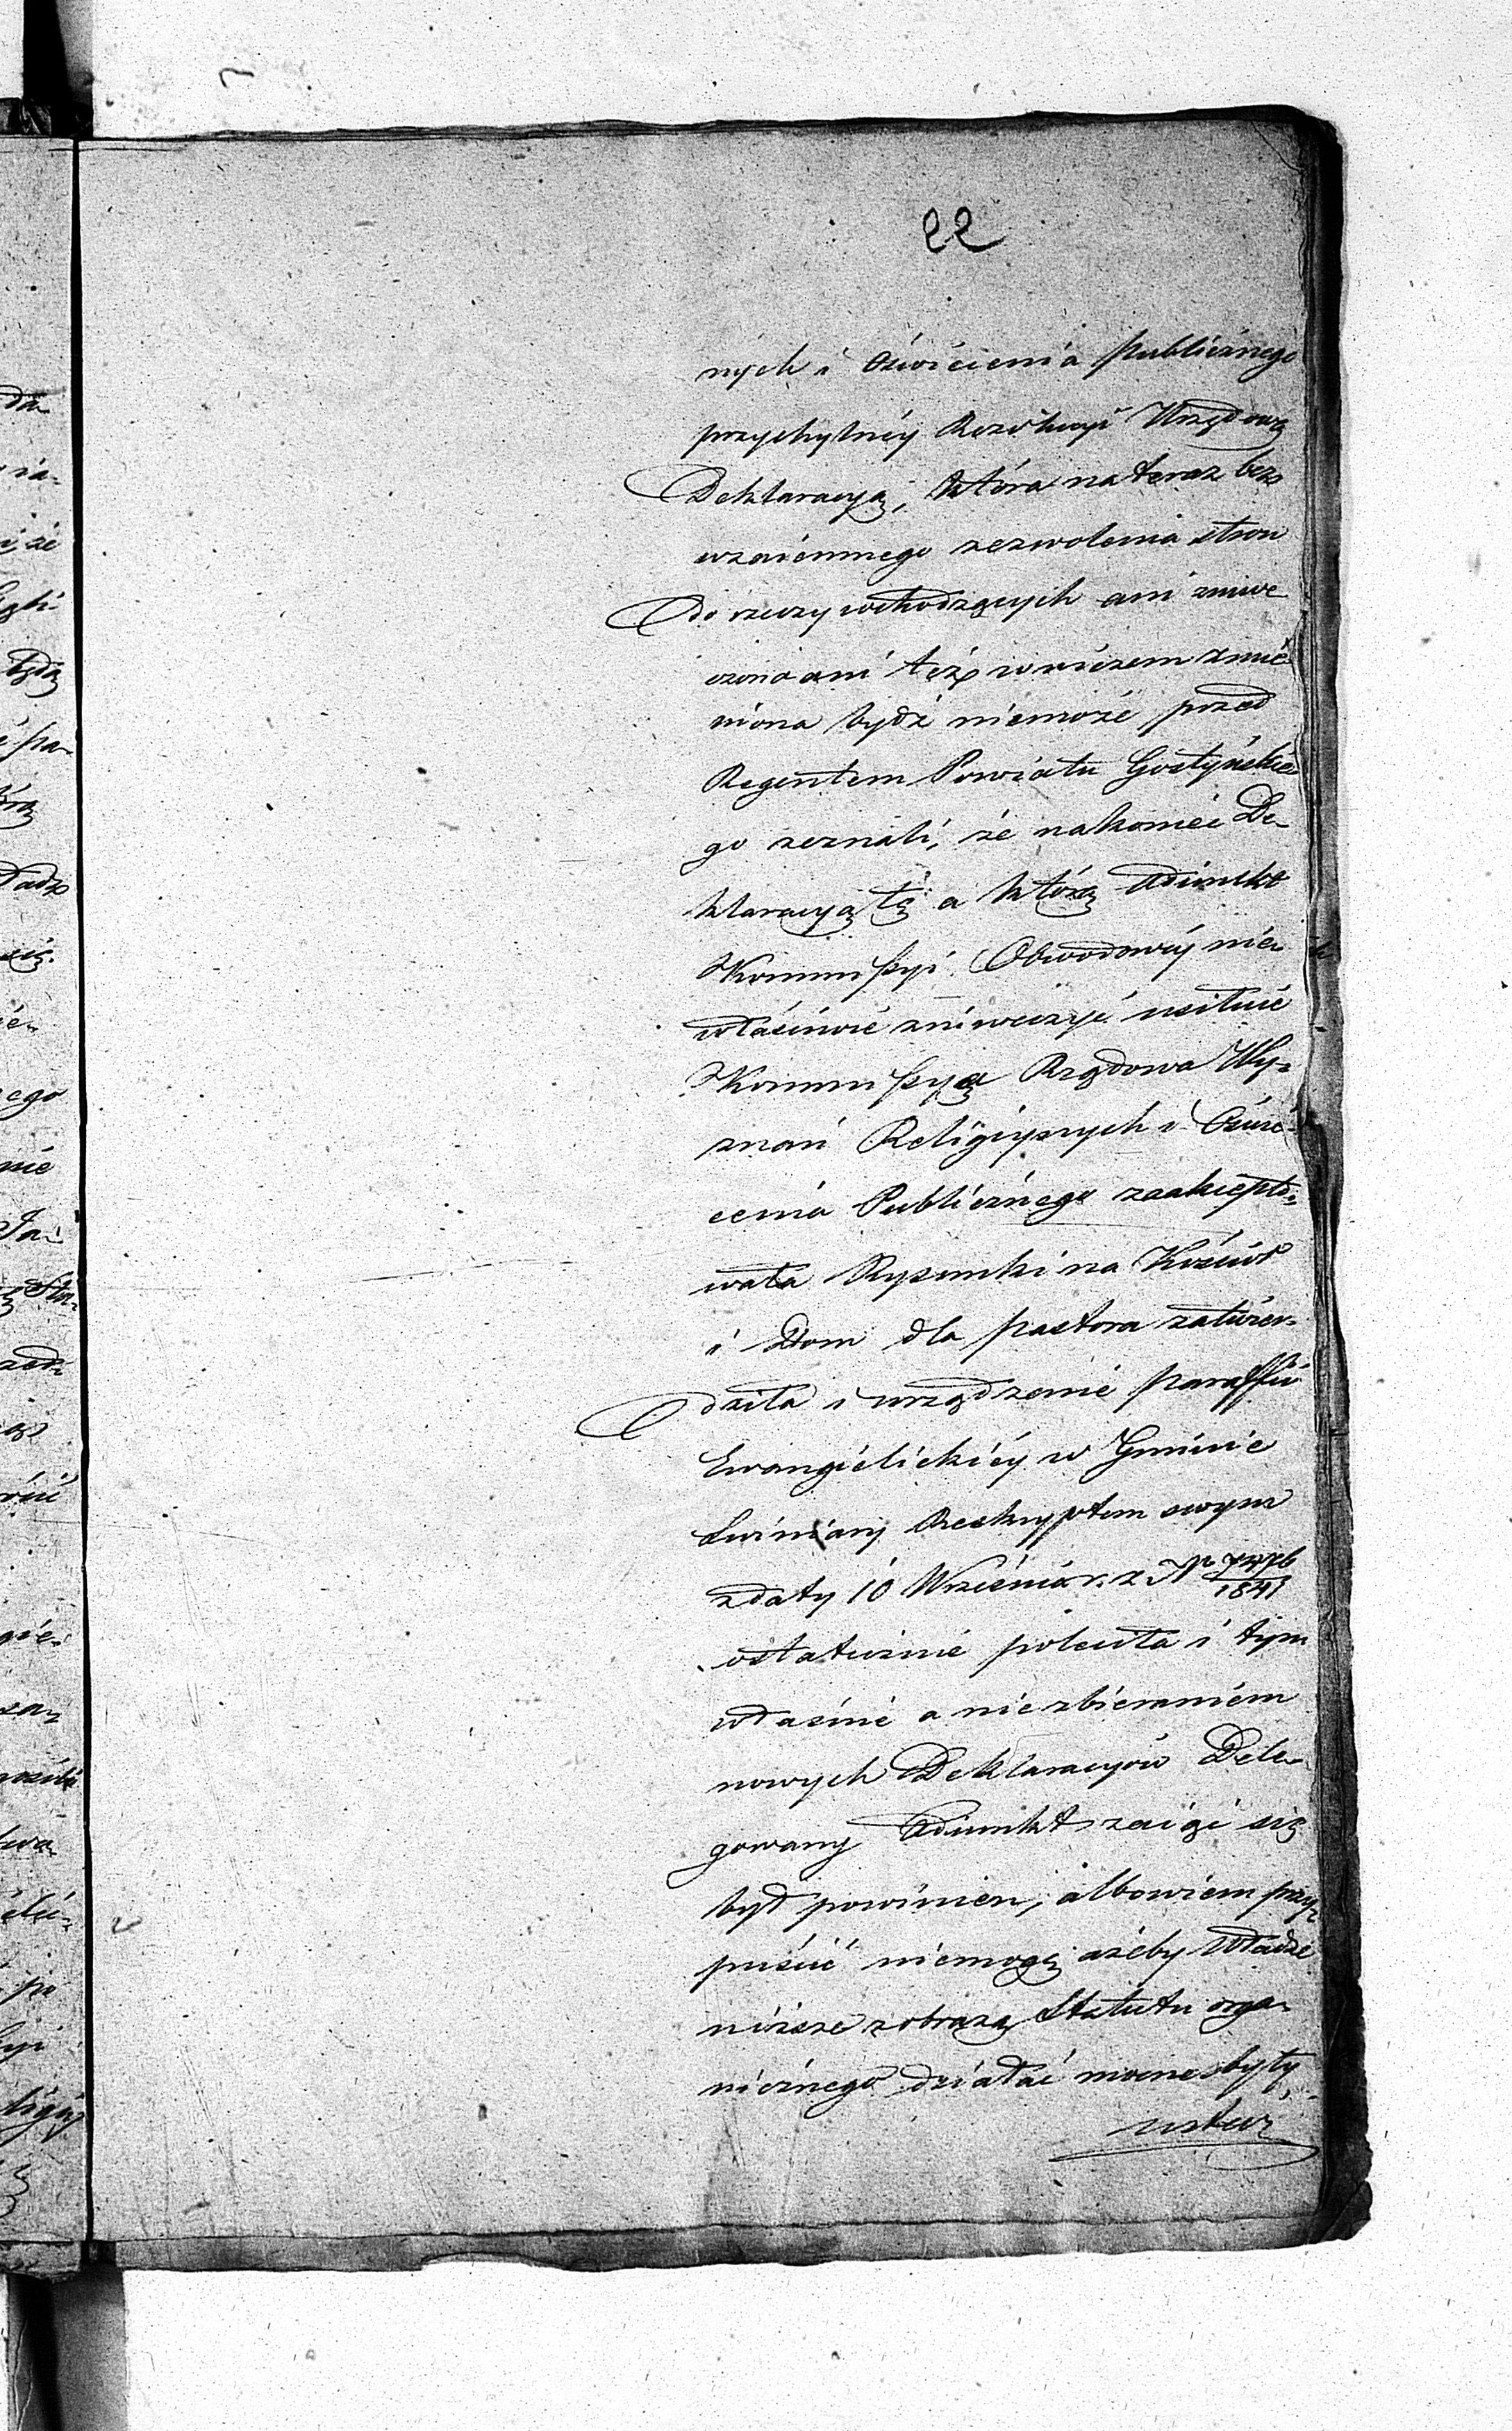 22
nych i Oświécienia publicznego
przychylnéy Rezolucyi Urzędową
Deklaracyą, która na teraz bez
wzaiemnego zezwolenia stron
do rzeczy wchodzących ani zniwe
czona ani też w niczem zmie
niona bydź niemoże przed
Regentem Powiatu Gostyńskie
go zeznali, że nakoniec De-
klaracyą tę a którą Adiunkt
Kommissyi Obwodowéy nie
właściwie zniweczyć usiłuie
Kommissya Rządowa Wy-
znań Religiynych i Oświé-
cenia Publicznego zaakcepto-
wała Rysunki na Kościoł
i Dom dla pastora zatwier-
dziła i urządzenie paraffii
Ewangielickiéy w Gminie
Świniary Reskryptem swym
z daty 10 Września r. z. N°
1841
ostatecznie poleciła i tym
właśnie a nie zbieraniem
nowych Deklaracyów Dele-
gowany Adiunkt zaiąć się
był powinien, albowiem przy-
puścić niemogę ażeby Władze
niższe z obrazą Statutu orga-
nicznego działać mocne były,